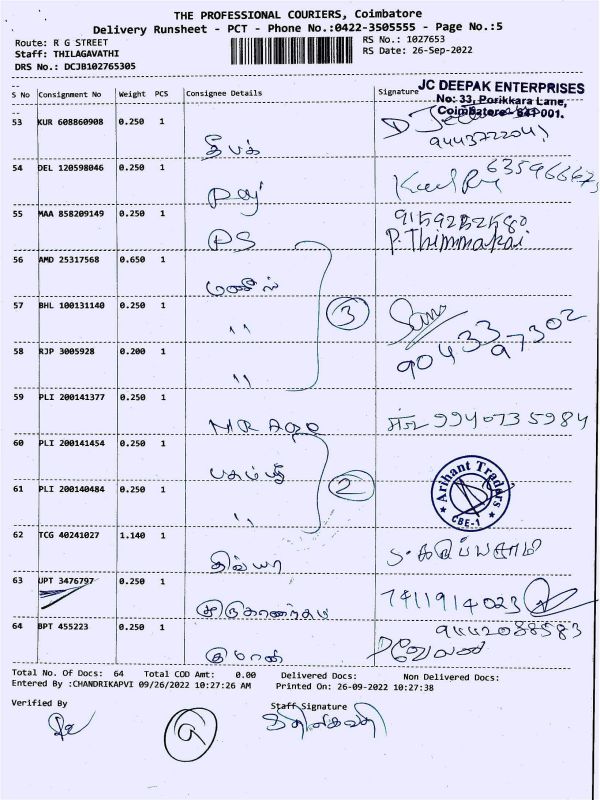 THE PROFESSIONAL COURIERS, Coimbatore
Delivery Runsheet - PCT - Phone No.:0422-3505555 - Page No.:5
Route: R G STREET RS No.: 1027653
Staff: THILAGAVATHI RS Date: 26-Sep-2022
DRS No.: DCJB102765305
JC DEEPAK ENTERPRISES
No: 33, Porikkara Lane,
Coimbatore - 641 001.
S No Consignment No Weight PCS Consignee Details Signature
53 KUR 608860908 0.250 1
9443722041
தீபக்
54 DEL 120598046 0.250 1
55 MAA 858209149 0.250 1
9159252580
PS P. Thimmakai
56 AMD 25317568 0.650 1
57 BHL 100131140 0.250 1
" 3
9043397302
58 RJP 3005928 0.200 1
"
59 PLI 200141377 0.250 1
9940735984
60 PLI 200141454 0.250 1
2
61 PLI 200140484 0.250 1
"
Arihant Traders
CBE-1
62 TCG 40241027 1.140 1
திவ்யா
63 UPT 3476797 0.250 1
7411914023
64 BPT 455223 0.250 1
9442088583
குமரன் வேலன்
Total No. Of Docs: 64 Total COD Amt: 0.00 Delivered Docs: Non Delivered Docs:
Entered By :CHANDRIKAPVI 09/26/2022 10:27:26 AM Printed On: 26-09-2022 10:27:38
Verified By Staff Signature
9